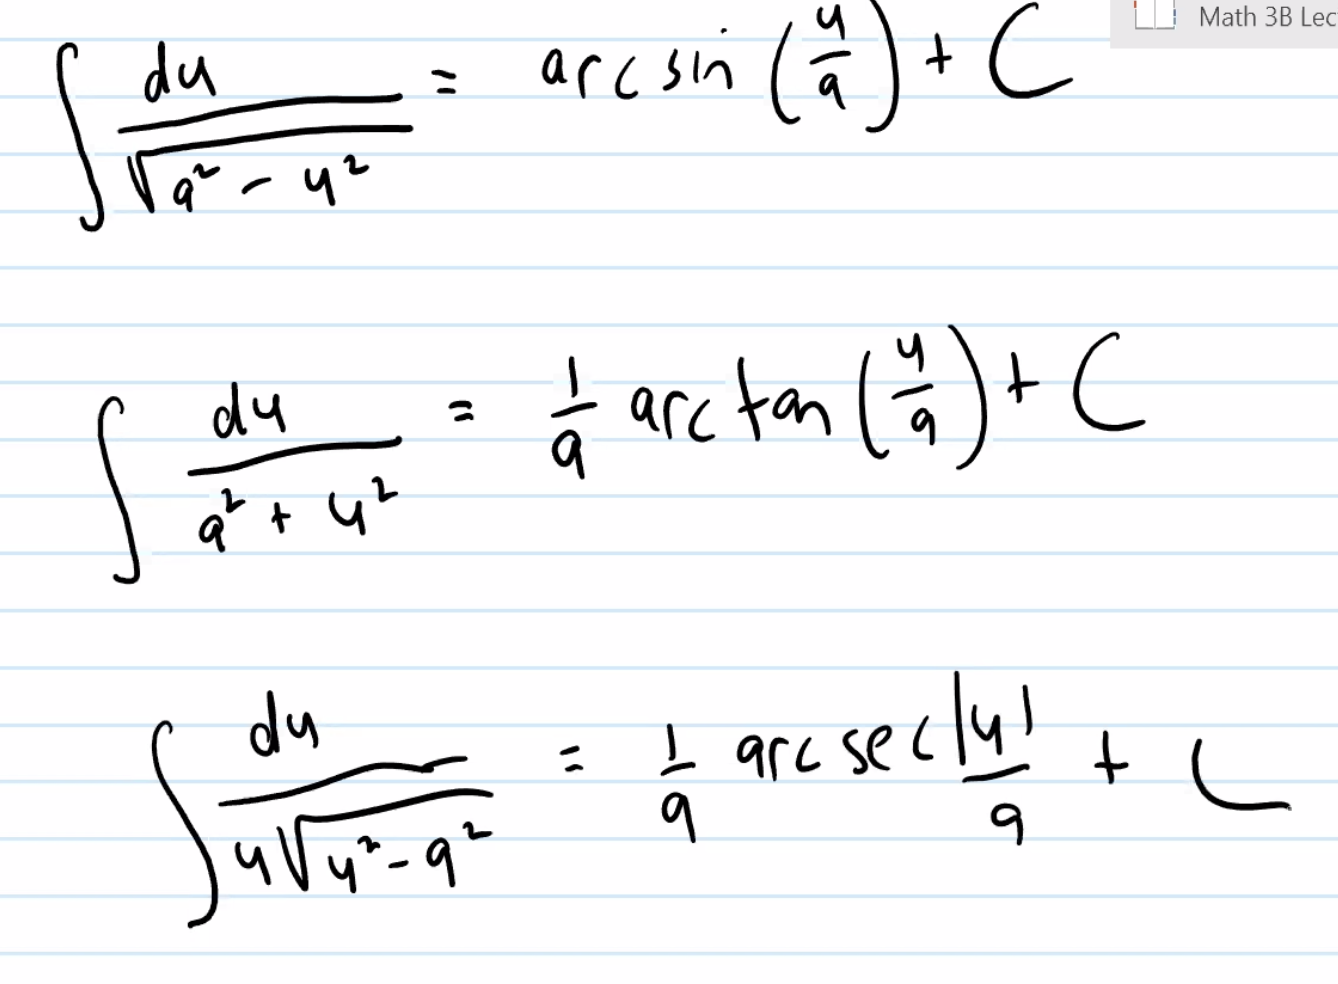 Math 3B Lec
∫ du / √(a² - u²) = arcsin (u/a) + C
∫ du / (a² + u²) = 1/a arctan (u/a) + C
∫ du / (u√(u² - a²)) = 1/a arcsec |u|/a + C